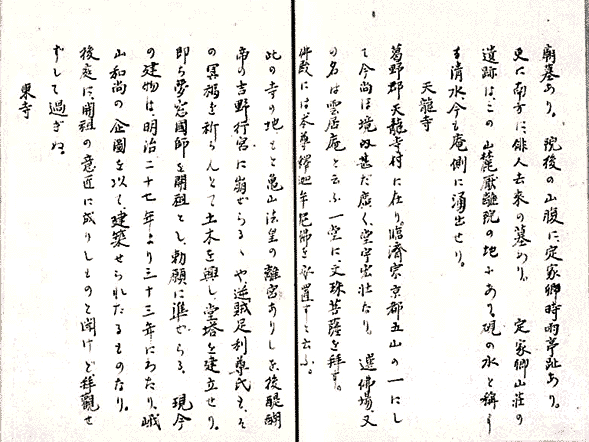 廟墓あり。院後の山腹に定家卿時雨亭趾あり。
更に南方に俳人去来の墓あり。定家卿山荘の
遺跡は、この山麓厭離院の地にある硯の水と称し
る清水今も庵側に涌出せり。
天龍寺
葛野郡天龍寺村に在り、臨済宗京都五山の一にし
て今尚ほ境域甚だ廣く、堂宇宏壮なり。選佛場又
の名は雲居庵と云ふ一堂に、文珠菩薩を拜す。
佛殿には本尊釋迦牟尼佛を安置すと云ふ。
此の寺の地もと亀山法皇の離宮ありしを後醍醐
帝の吉野行宮に崩ぜらるゝや逆賊足利尊氏も、そ
の冥福を祈らんとて土木を興し堂塔を建立せり。
即ち夢窓國師を開祖とし、勅願に準ぜらる、現今
の建物は、明治二十七年より三十三年にわたり、峨
山和尚の企圖を以て建築せられたるものなり。
後庭に開祖の意匠に成りしものと聞けど拜觀せ
ずして過ぎぬ。
東寺